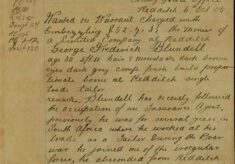 Redditch 6 Oct 08
Wanted on Warrant Charged with
Embezzling £52. 9. the monies of
a Limited Company at Redditch
George Frederick Blundell
age 30 5ft hair & moustache dark brown
eyes dark grey, comp fresh
at Redditch single
trade tailor
remarks. Blundell has recently followed
the occupation of an Insurance Agent,
previously he was for several years in
South Africa where he worked at his
trade as a Tailor During the Boer
War he joined one of the irregular
forces, he absconded from Redditch